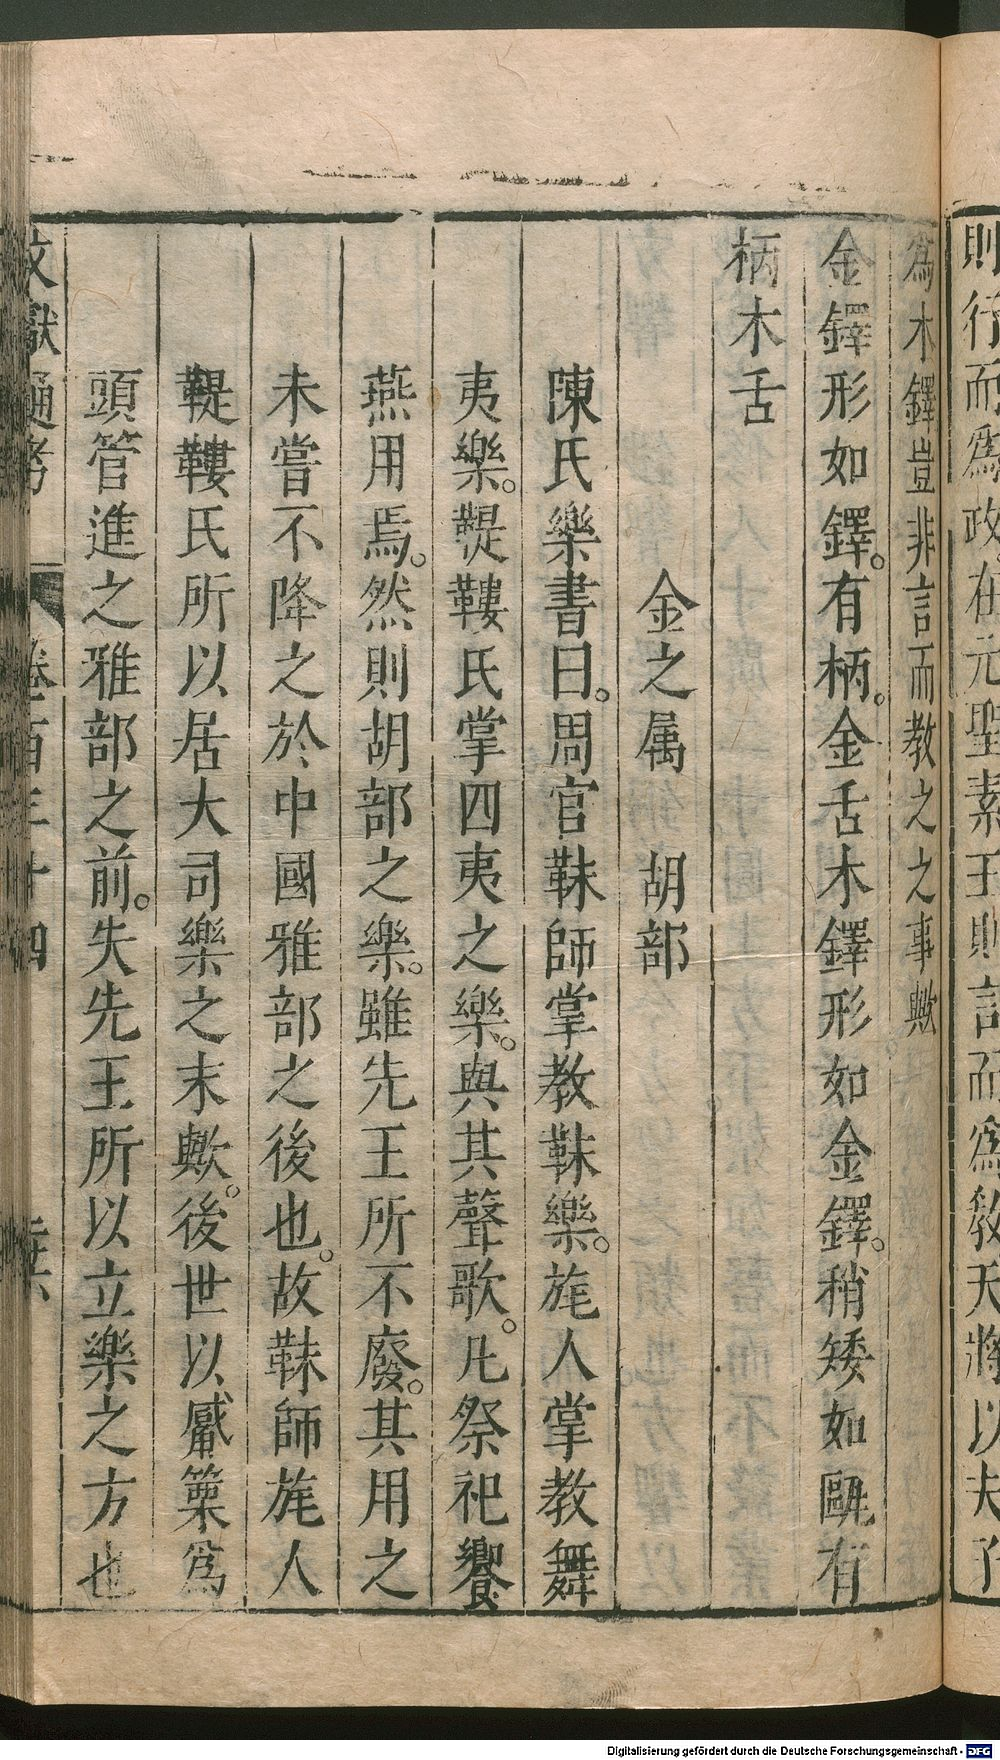 則行而爲政在元聖素王則言而爲教天將以夫子
爲木鐸豈非言而教之之事歟
金鐸形如鐸。有柄。金舌木鐸形如金鐸。稍矮如甌有
柄木舌
金之属　胡部
陳氏樂書曰。周官韎師掌教韎樂。旄人掌教舞
夷樂。鞮鞻氏掌四夷之樂。與其聲歌。凡祭祀饗
燕用焉。然則胡部之樂。雖先王所不廢。其用之
未嘗不降之於中國雅部之後也。故韎師旄人
鞮鞻氏所以居大司樂之末歟。後世以觱篥爲
頭管進之雅部之前。失先王所以立樂之方也
文獻通考　卷百三十四
Digitalisierung gefördert durch die Deutsche Forschungsgemeinschaft - DFG